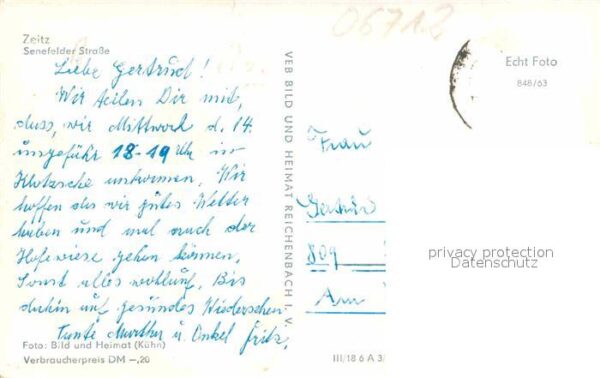 06712
Zeitz
Senefelder Straße
Liebe Gertrud!
Wir teilen Dir mit,
dass, wir Mittwoch d. 14.
ungefähr 18-19 Uhr in
Klotzsche ankommen. Wir
hoffen das wir gutes Wetter
haben und mal nach der
Hofewiese gehen können,
Sonst alles wohlauf, Bis
dahin auf gesundes Wiedersehen
Tante Martha u. Onkel Fritz,
Foto: Bild und Heimat (Kühn)
Verbraucherpreis DM —,20
VEB BILD UND HEIMAT REICHENBACH I. V.
Echt Foto
848/63
Frau
809
Am
III/18 6 A 3/
privacy protection
Datenschutz